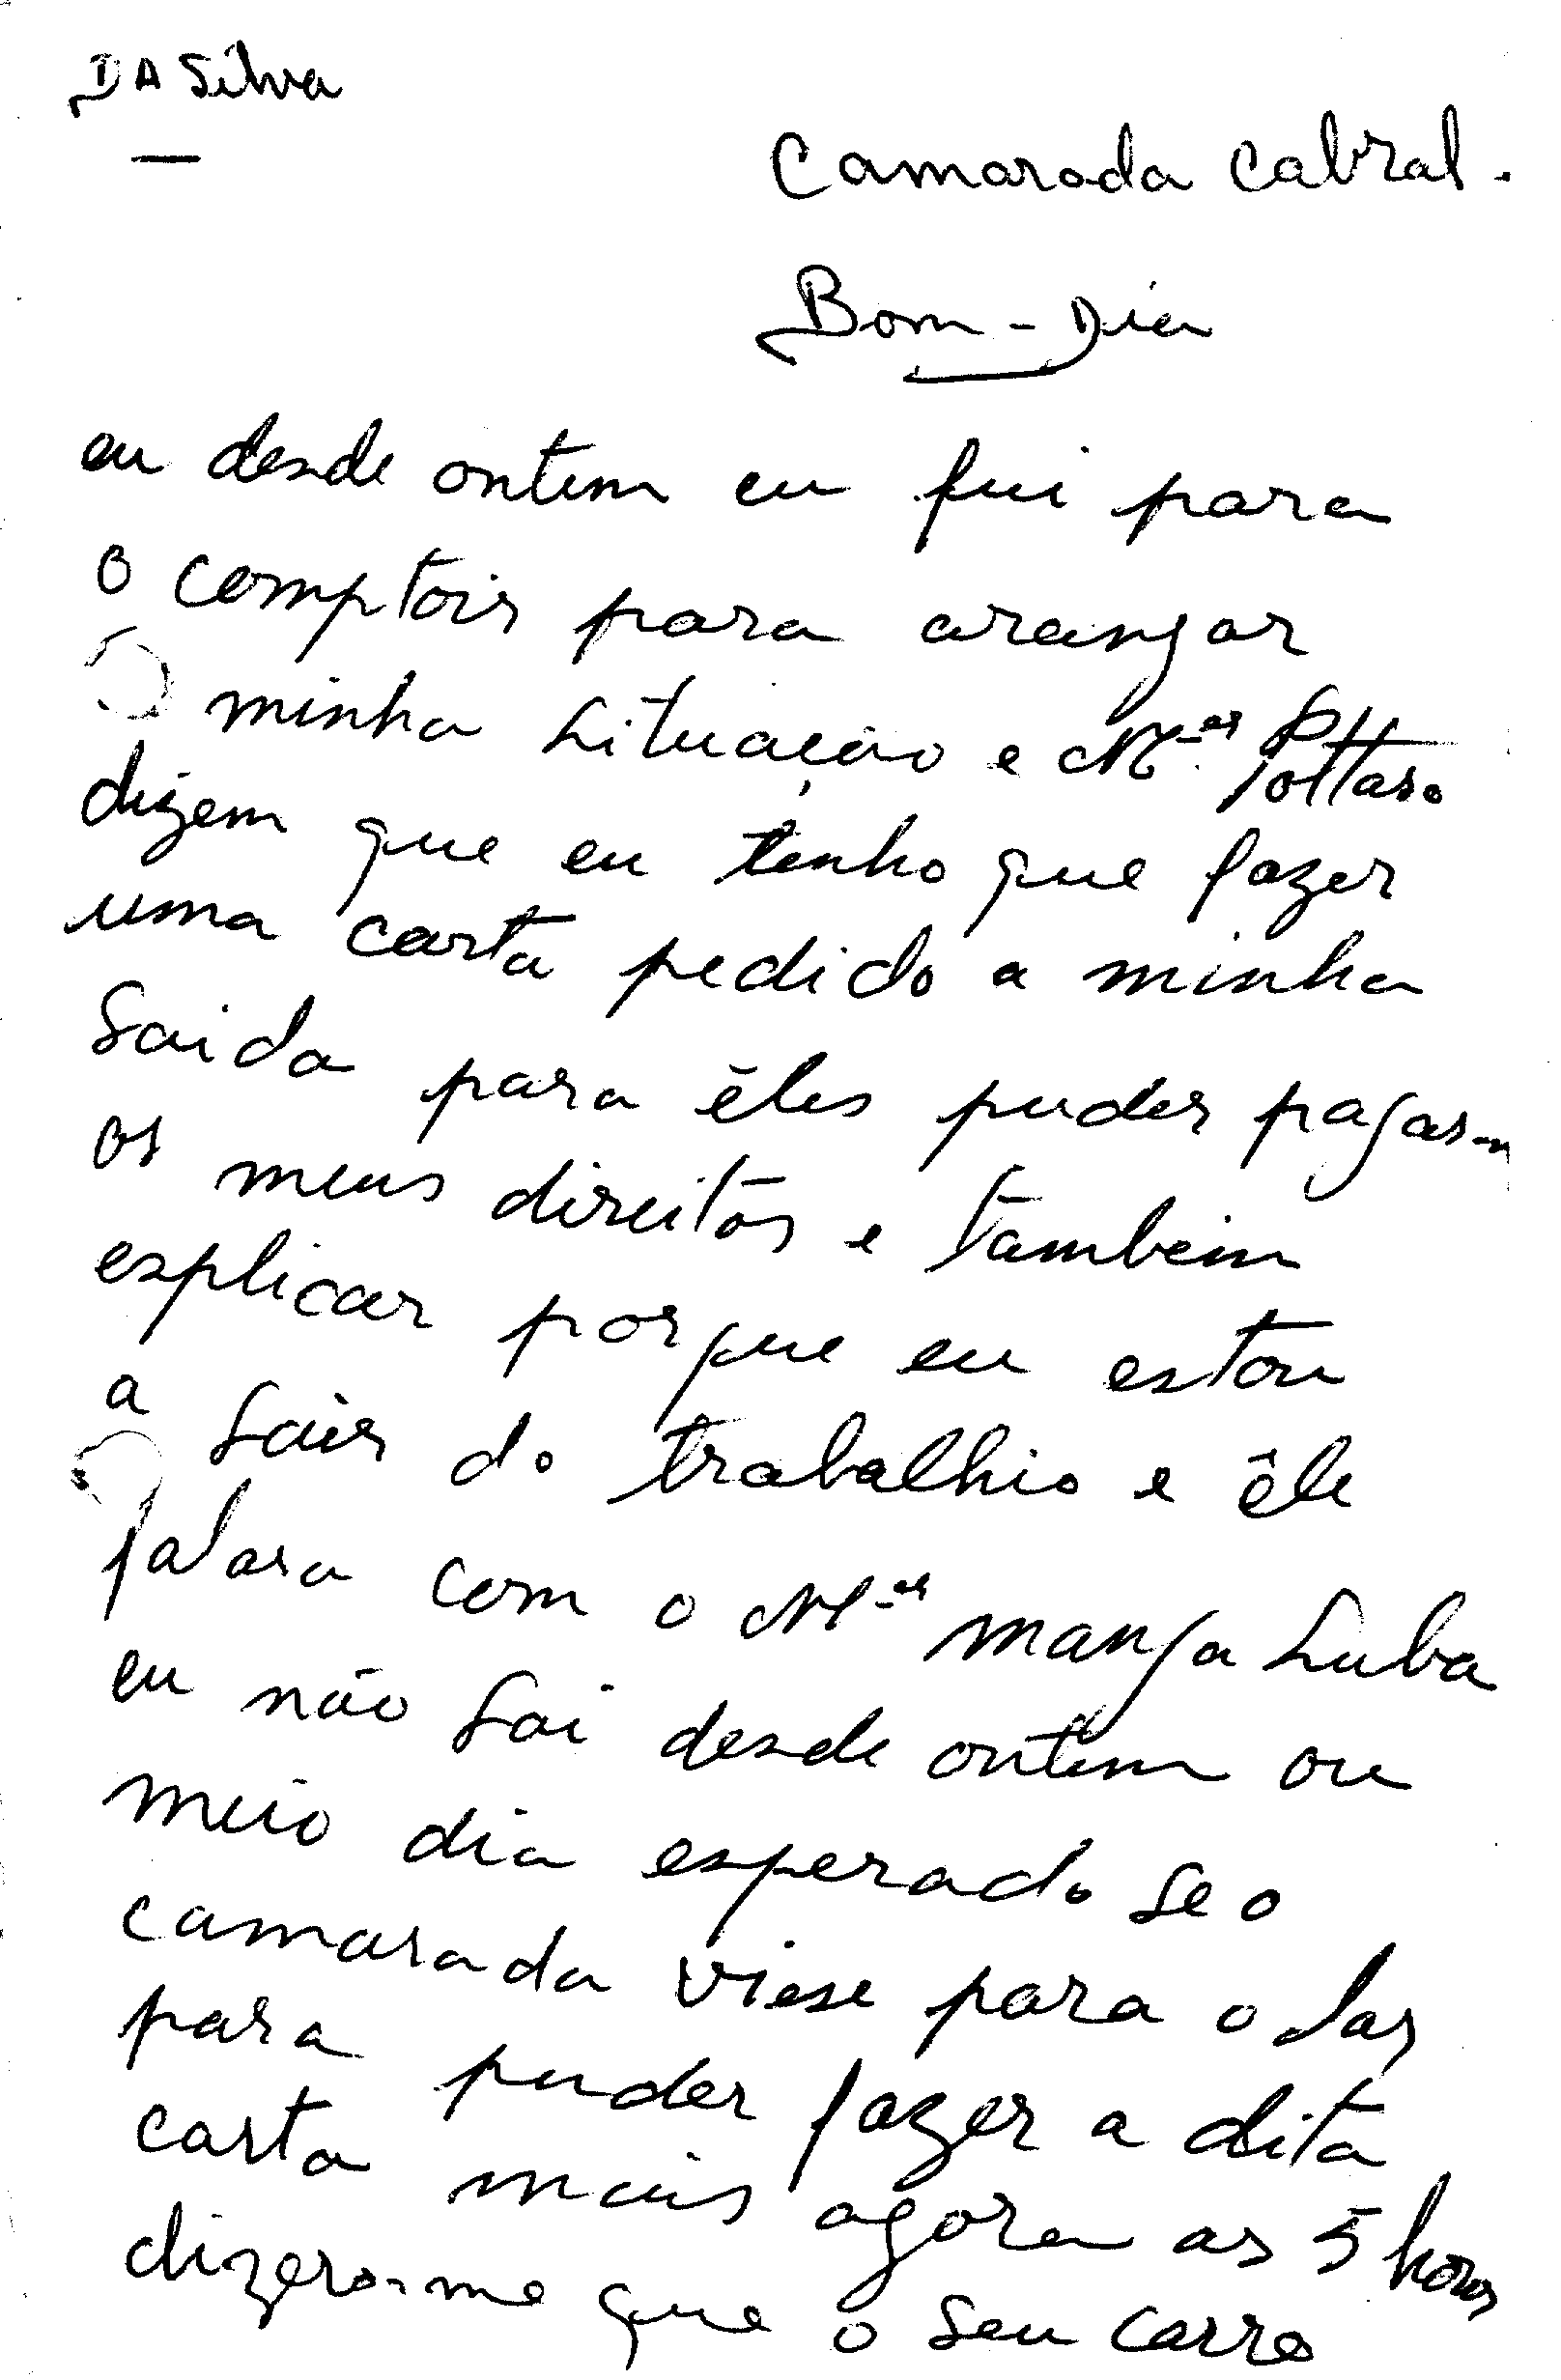 DA Silva
Camarada Cabral.
Bom-Dia
eu desde ontem eu fui para
o comptoir para arangar
minha situação e Mer Pottas.
dizem que eu tenho que fazer
uma carta pedido a minha
saida para êles puder pagar-
os meus direitos e tambem
esplicar porque eu estou
a sair do trabalhio e êle
falara com o Mer manga Luba
eu não sai desde ontem ou
meio dia esperado se o
camarada viese para o lar
para puder fazer a dita
carta mais agora as 5 horas
dizero-me que o seu carro